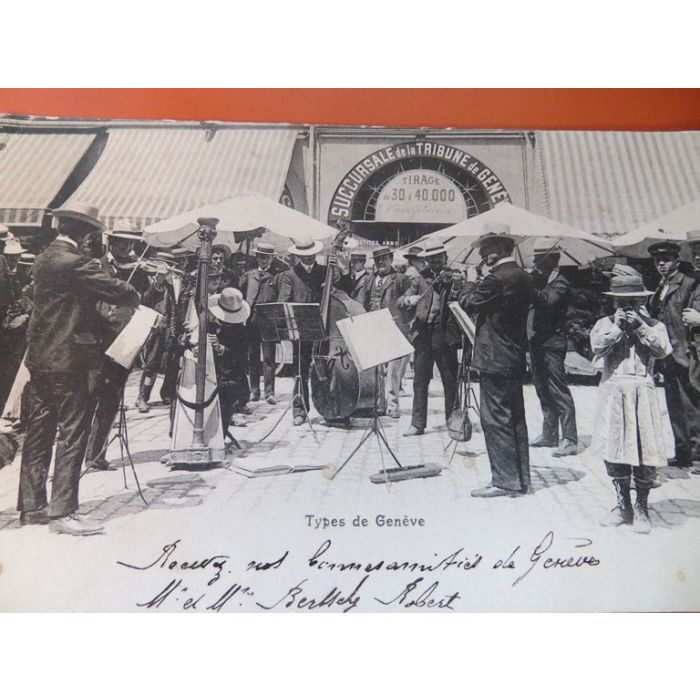 SUCCURSALE de la TRIBUNE de GENÈVE
TIRAGE
de
30 à 40.000
Exemplaires
PETITES ANNO
Types de Genève
Recevez nos bonnes amitiés de Genève
Mr et Mme Robert